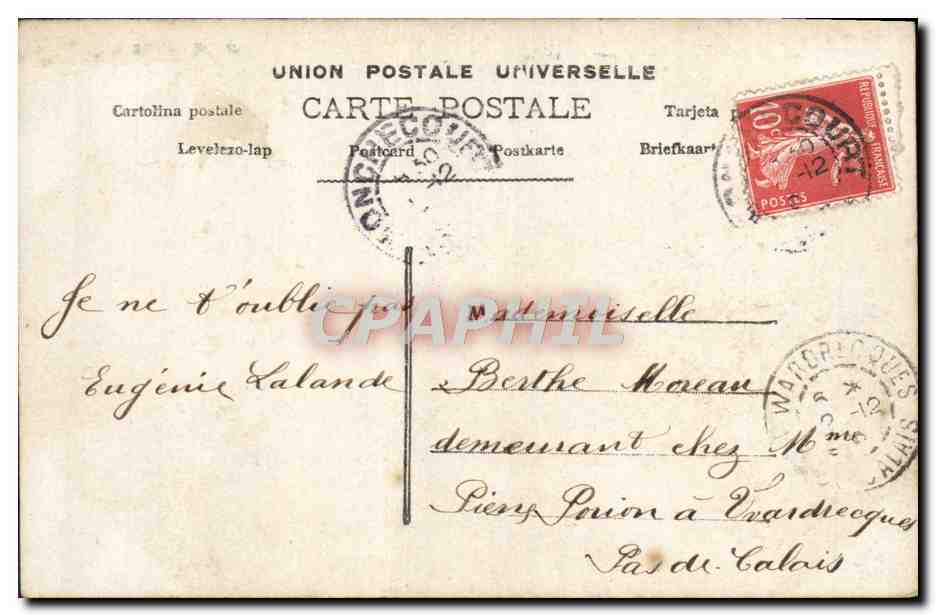 UNION POSTALE UNIVERSELLE
Cartolina postale CARTE POSTALE Tarjeta
Levelezo-lap Postcard Postkarte Briefkaart
RÉPUBLIQUE FRANÇAISE
10c
POSTES
COURT
12
ONCHECOURT
Je ne t'oublie pas
Eugénie Lalande
Mademoiselle
Berthe Moreau
demeurant chez Mme
Pierre Porion à Wardrecques
Pas-de-Calais
WARDRECQUES
CPAPHIL